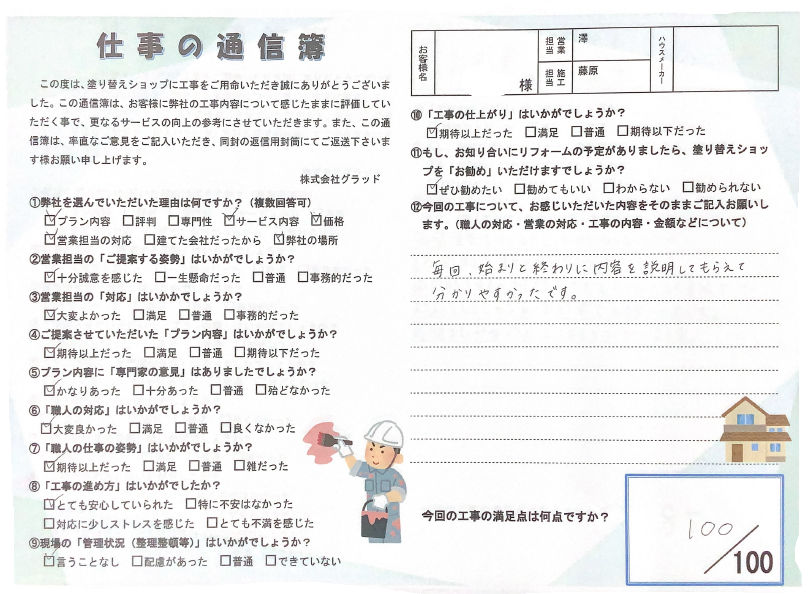 仕事の通信簿
この度は、塗り替えショップに工事をご用命いただき誠にありがとうございま
した。この通信簿は、お客様に弊社の工事内容について感じたままに評価してい
ただく事で、更なるサービスの向上の参考にさせていただきます。また、この通
信簿は、率直なご意見をご記入いただき、同封の返信用封筒にてご返送下さいま
す様お願い申し上げます。
株式会社グラッド
①弊社を選んでいただいた理由は何ですか？（複数回答可）
☑プラン内容 □評判 □専門性 ☑サービス内容 ☑価格
☑営業担当の対応 □建てた会社だったから ☑弊社の場所
②営業担当の「ご提案する姿勢」はいかがでしょうか？
☑十分誠意を感じた □一生懸命だった □普通 □事務的だった
③営業担当の「対応」はいかかでしょうか？
☑大変よかった □満足 □普通 □事務的だった
④ご提案させていただいた「プラン内容」はいかがでしょうか？
☑期待以上だった □満足 □普通 □期待以下だった
⑤プラン内容に「専門家の意見」はありましたでしょうか？
☑かなりあった □十分あった □普通 □殆どなかった
⑥「職人の対応」はいかがでしょうか？
☑大変良かった □満足 □普通 □良くなかった
⑦「職人の仕事の姿勢」はいかがでしょうか？
☑期待以上だった □満足 □普通 □雑だった
⑧「工事の進め方」はいかがでしたか？
☑とても安心していられた □特に不安はなかった
□対応に少しストレスを感じた □とても不満を感じた
⑨現場の「管理状況（整理整頓等）」はいかがでしょうか？
☑言うことなし □配慮があった □普通 □できていない
お客様名 様 営業担当 澤 ハウスメーカー
施工担当 藤原
⑩「工事の仕上がり」はいかがでしょうか？
☑期待以上だった □満足 □普通 □期待以下だった
⑪もし、お知り合いにリフォームの予定がありましたら、塗り替えショッ
プを「お勧め」いただけますでしょうか？
☑ぜひ勧めたい □勧めてもいい □わからない □勧められない
⑫今回の工事について、お感じいただいた内容をそのままご記入お願いし
ます。（職人の対応・営業の対応・工事の内容・金額などについて）
毎回、始まりと終わりに内容を説明してもらえて
分かりやすかったです。
今回の工事の満足点は何点ですか？
100／100